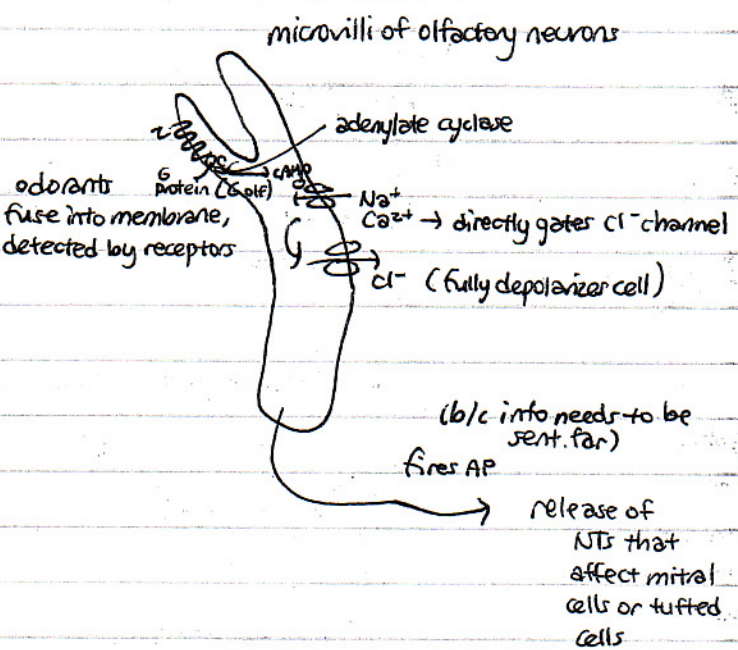 microvilli of olfactory neurons
adenylate cyclase
cAMP
G
protein (Golf)
odorants
fuse into membrane,
detected by receptors
Na+
Ca2+ → directly gates Cl- channel
Cl- (fully depolarizes cell)
(b/c info needs to be
sent far)
fires AP
release of
NTs that
affect mitral
cells or tufted
cells